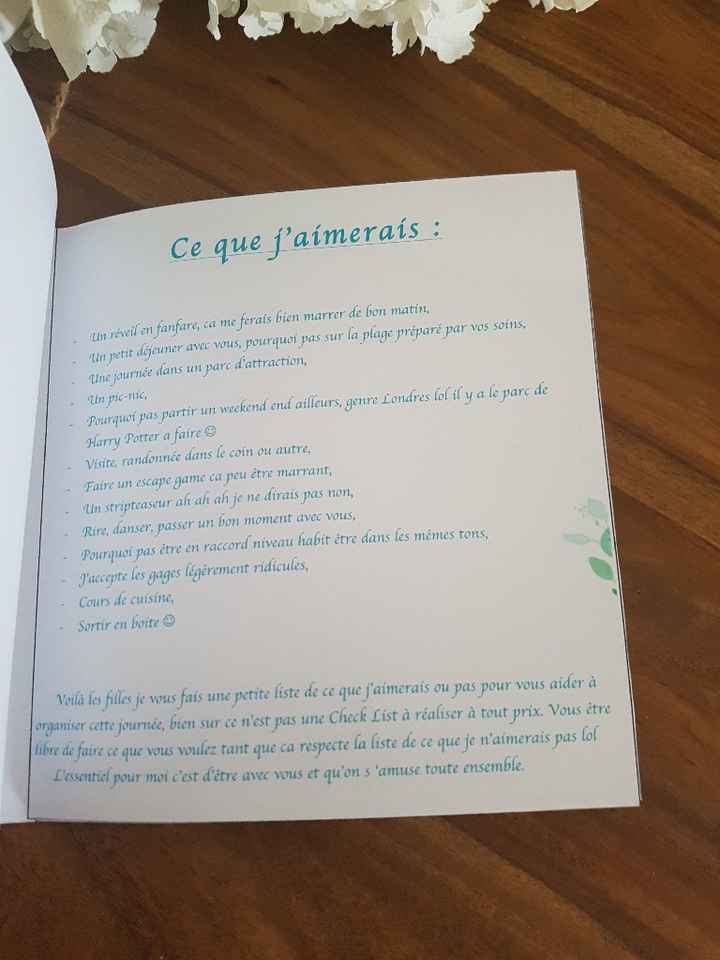 Ce que j'aimerais :
- Un réveil en fanfare, ca me ferais bien marrer de bon matin,
- Un petit déjeuner avec vous, pourquoi pas sur la plage préparé par vos soins,
- Une journée dans un parc d'attraction,
- Un pic-nic,
- Pourquoi pas partir un weekend end ailleurs, genre Londres lol il y a le parc de
Harry Potter a faire ☺
- Visite, randonnée dans le coin ou autre,
- Faire un escape game ca peu être marrant,
- Un stripteaseur ah ah ah je ne dirais pas non,
- Rire, danser, passer un bon moment avec vous,
- Pourquoi pas être en raccord niveau habit être dans les mêmes tons,
- J'accepte les gages légèrement ridicules,
- Cours de cuisine,
- Sortir en boite ☺
Voilà les filles je vous fais une petite liste de ce que j'aimerais ou pas pour vous aider à
organiser cette journée, bien sur ce n'est pas une Check List à réaliser à tout prix. Vous être
libre de faire ce que vous voulez tant que ca respecte la liste de ce que je n'aimerais pas lol
L'essentiel pour moi c'est d'être avec vous et qu'on s 'amuse toute ensemble.